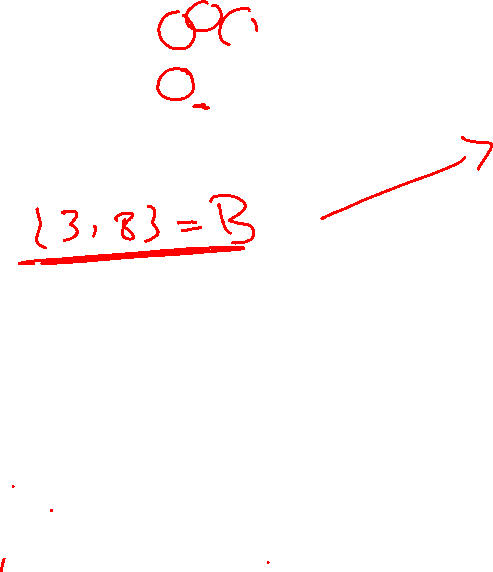 {3, 8} = B